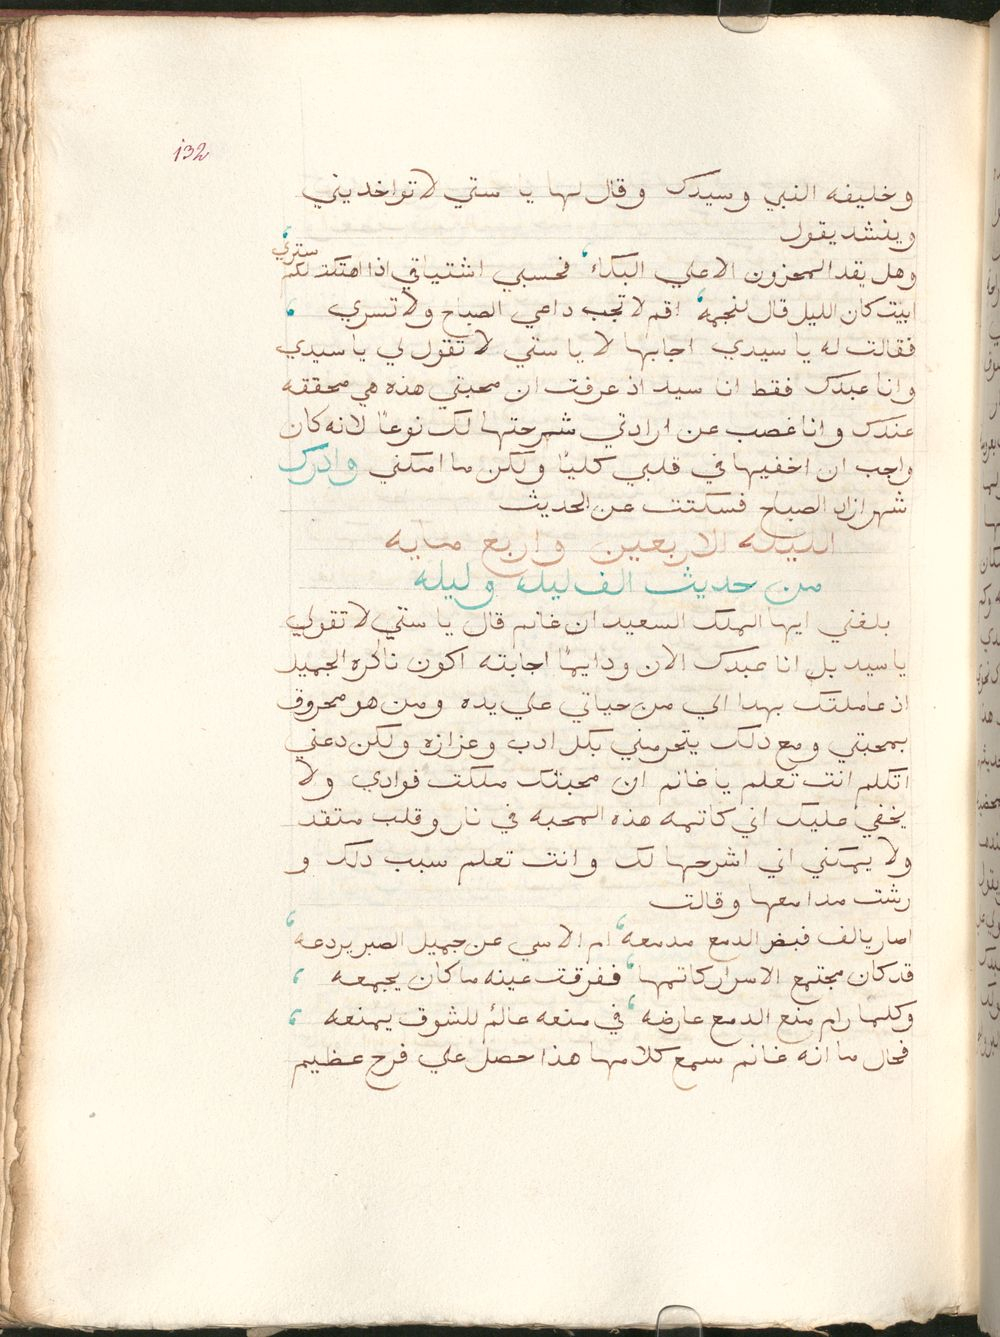 132
وخليفه النبي وسيدك وقال لها يا ستي لا تواخديني
وينشد يقول
وهل يقد المحزون الا علي البكاء، فحسبي اشتياقي اذا اهتكت لكم ستري،
ابيت كان الليل قال لنجمه، اقم لا تجب داعي الصباح ولا تسري،
فقالت له يا سيدي اجابها لا يا ستي لا تقول لي يا سيدي
وانا عبدك فقط انا سيد اذ عرفت ان محبتي هذه هي محققه
عندك وانا غصب عن ارادتي شرحتها لك نوعا لانه كان
واجب ان اخفيها في قلبي كليا ولكن ما امكني وادرك
شهرازاد الصباح فسكتت عن الحديث
الليله الاربعين واربع مايه
من حديث الف ليله وليله
بلغني ايها الملك السعيد ان غانم قال يا ستي لا تقولي
يا سيد بل انا عبدك الان ودايما اجابته اكون ناكره الجميل
اذ عاملتك بهدا الي من حياتي علي يده ومن هو محروق
بمحبتي ومع دلك يتحرمني بكل ادب وعزازه ولكن دعني
اتكلم انت تعلم يا غانم ان محبتك ملكت فوادي ولا
يخفي عليك اني كاتمه هذه المحبه في نار وقلب متقد
ولا يمكني اني اشرحها لك وانت تعلم سبب دلك و
رشت مدامعها وقالت
اصار يالف فبض الدمع مدمعه، ام الاسي عن جميل الصبر يردعه،
قد كان مجتمع الاسرار كاتمها، ففرقت عينه ما كان يجمعه،
وكلما رام منع الدمع عارضه، في منعه عالم للشوق يمنعه،
فحال ما انه غانم سمع كلامها هذا حصل علي فرح عظيم